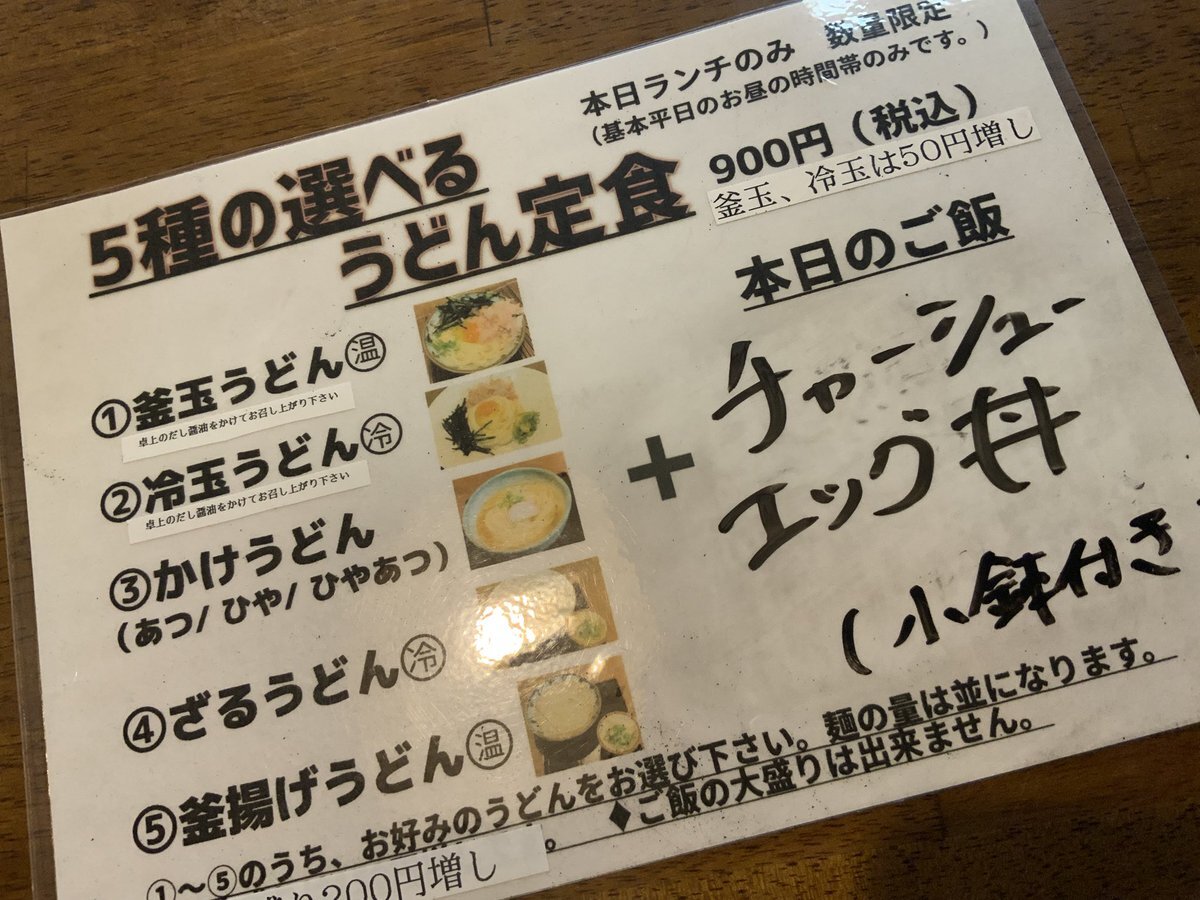 本日ランチのみ 数量限定
(基本平日のお昼の時間帯のみです。)
5種の選べる
うどん定食
900円(税込)
釜玉、冷玉は50円増し
①釜玉うどん㊀温
卓上のだし醤油をかけてお召し上がり下さい
②冷玉うどん冷
卓上のだし醤油をかけてお召し上がり下さい
③かけうどん
(あつ/ひや/ひやあつ)
④ざるうどん冷
⑤釜揚げうどん温
+
本日のご飯
チャーシュー
エッグ丼
(小鉢付き
①~⑤のうち、お好みのうどんをお選び下さい。麺の量は並になります。
200円増し
。 ♦ご飯の大盛りは出来ません。